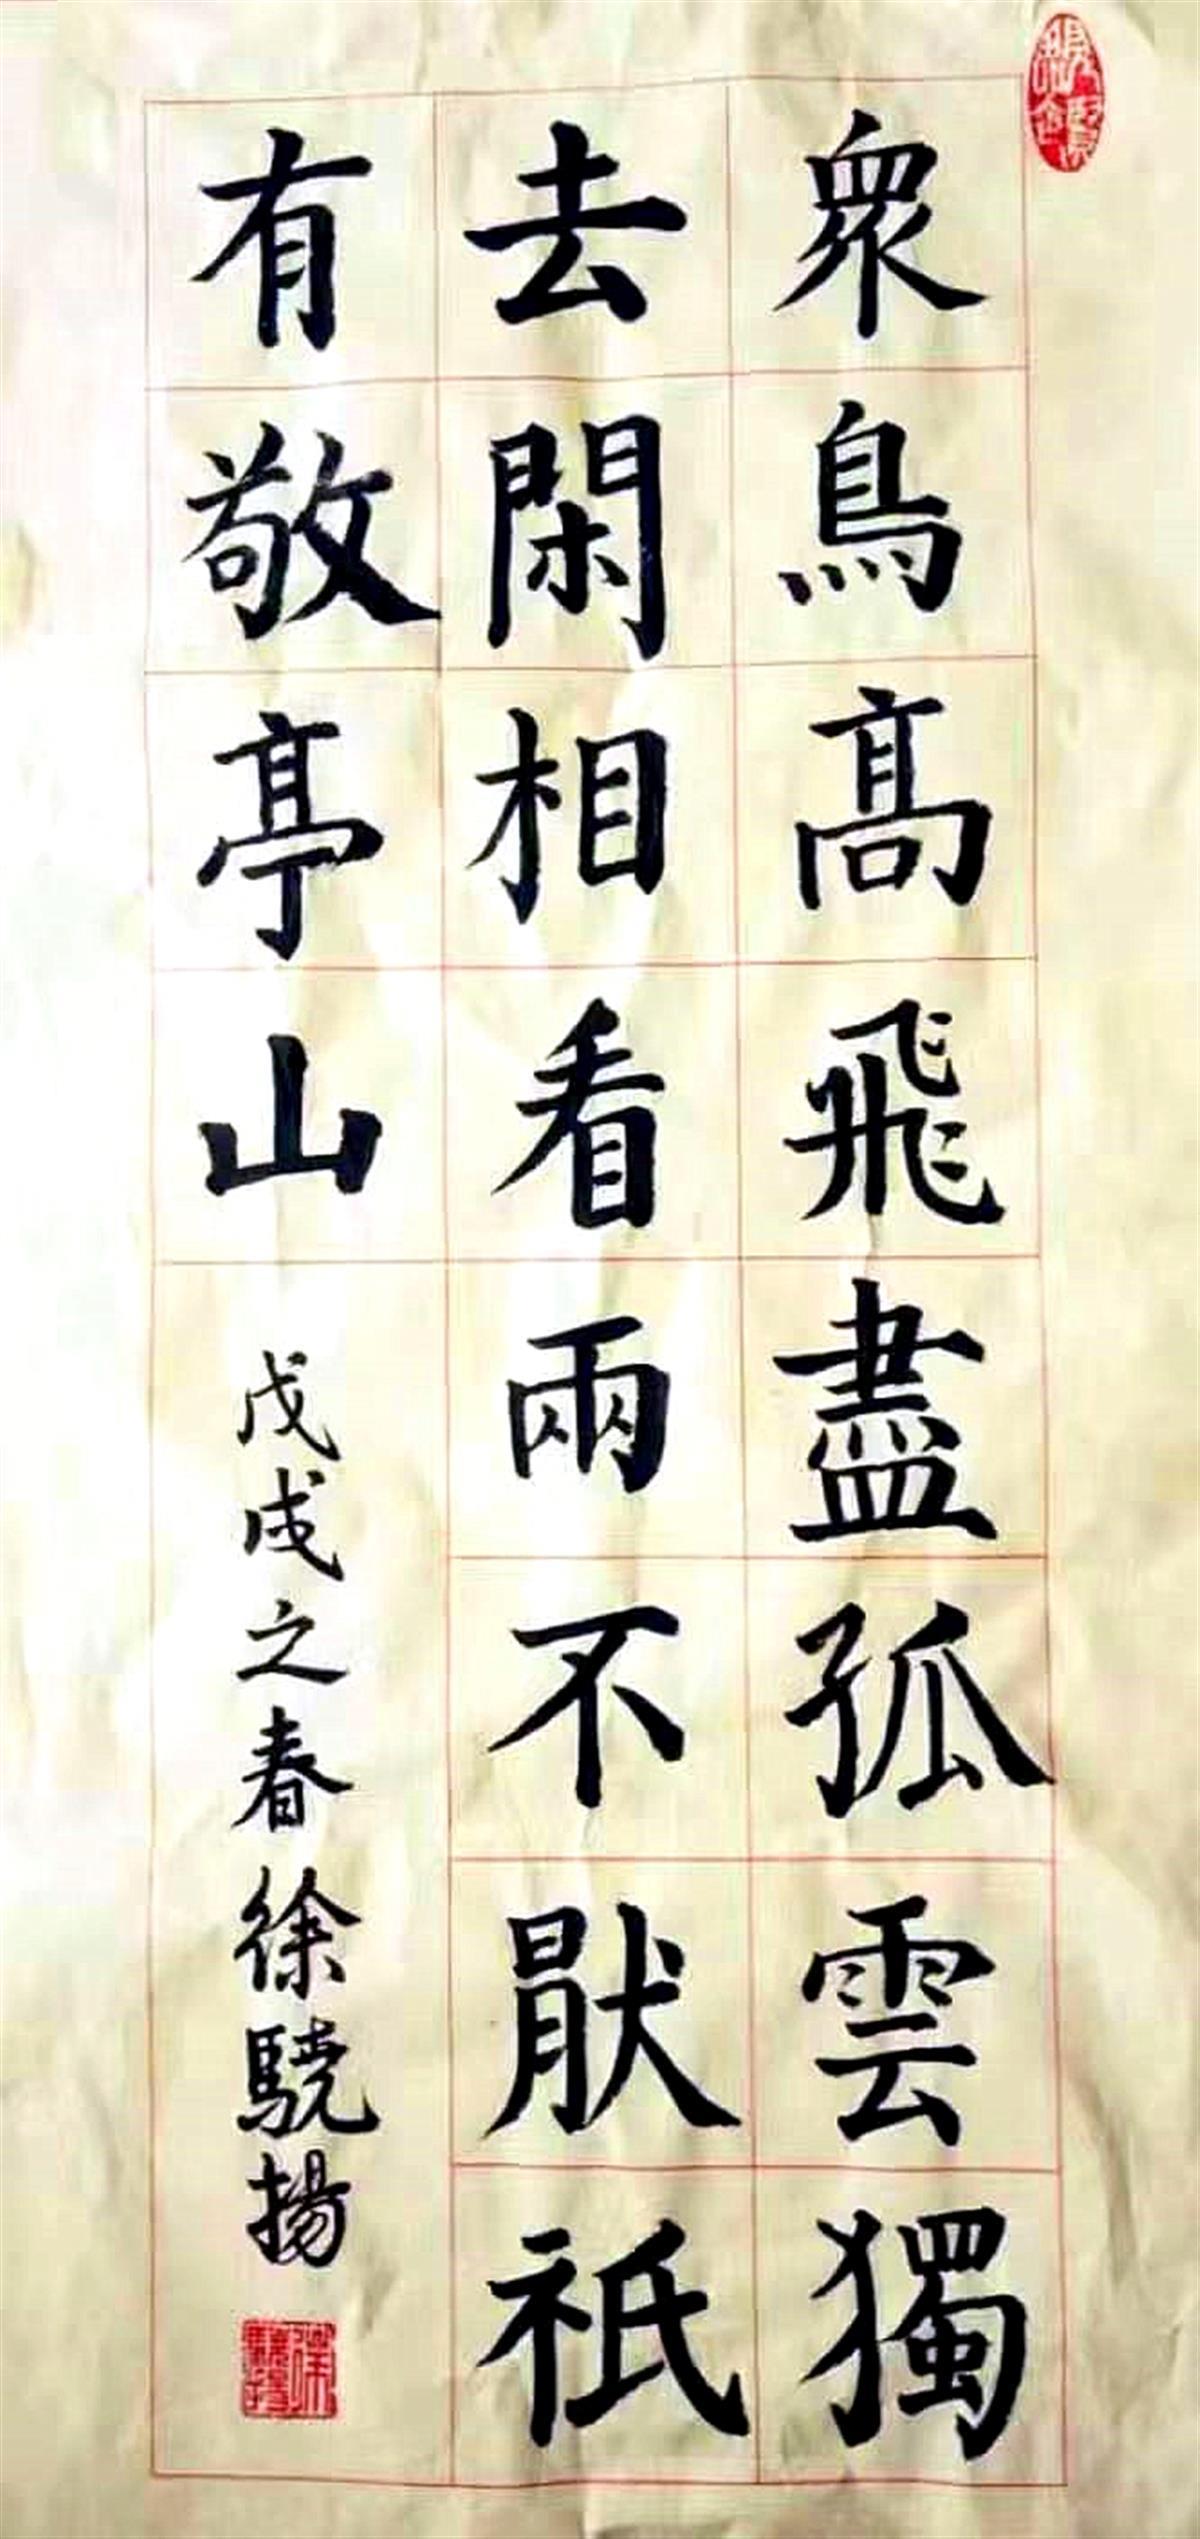 眾鳥高飛盡孤雲獨
去閑相看兩不猒祇
有敬亭山
戊戌之春徐驍揚